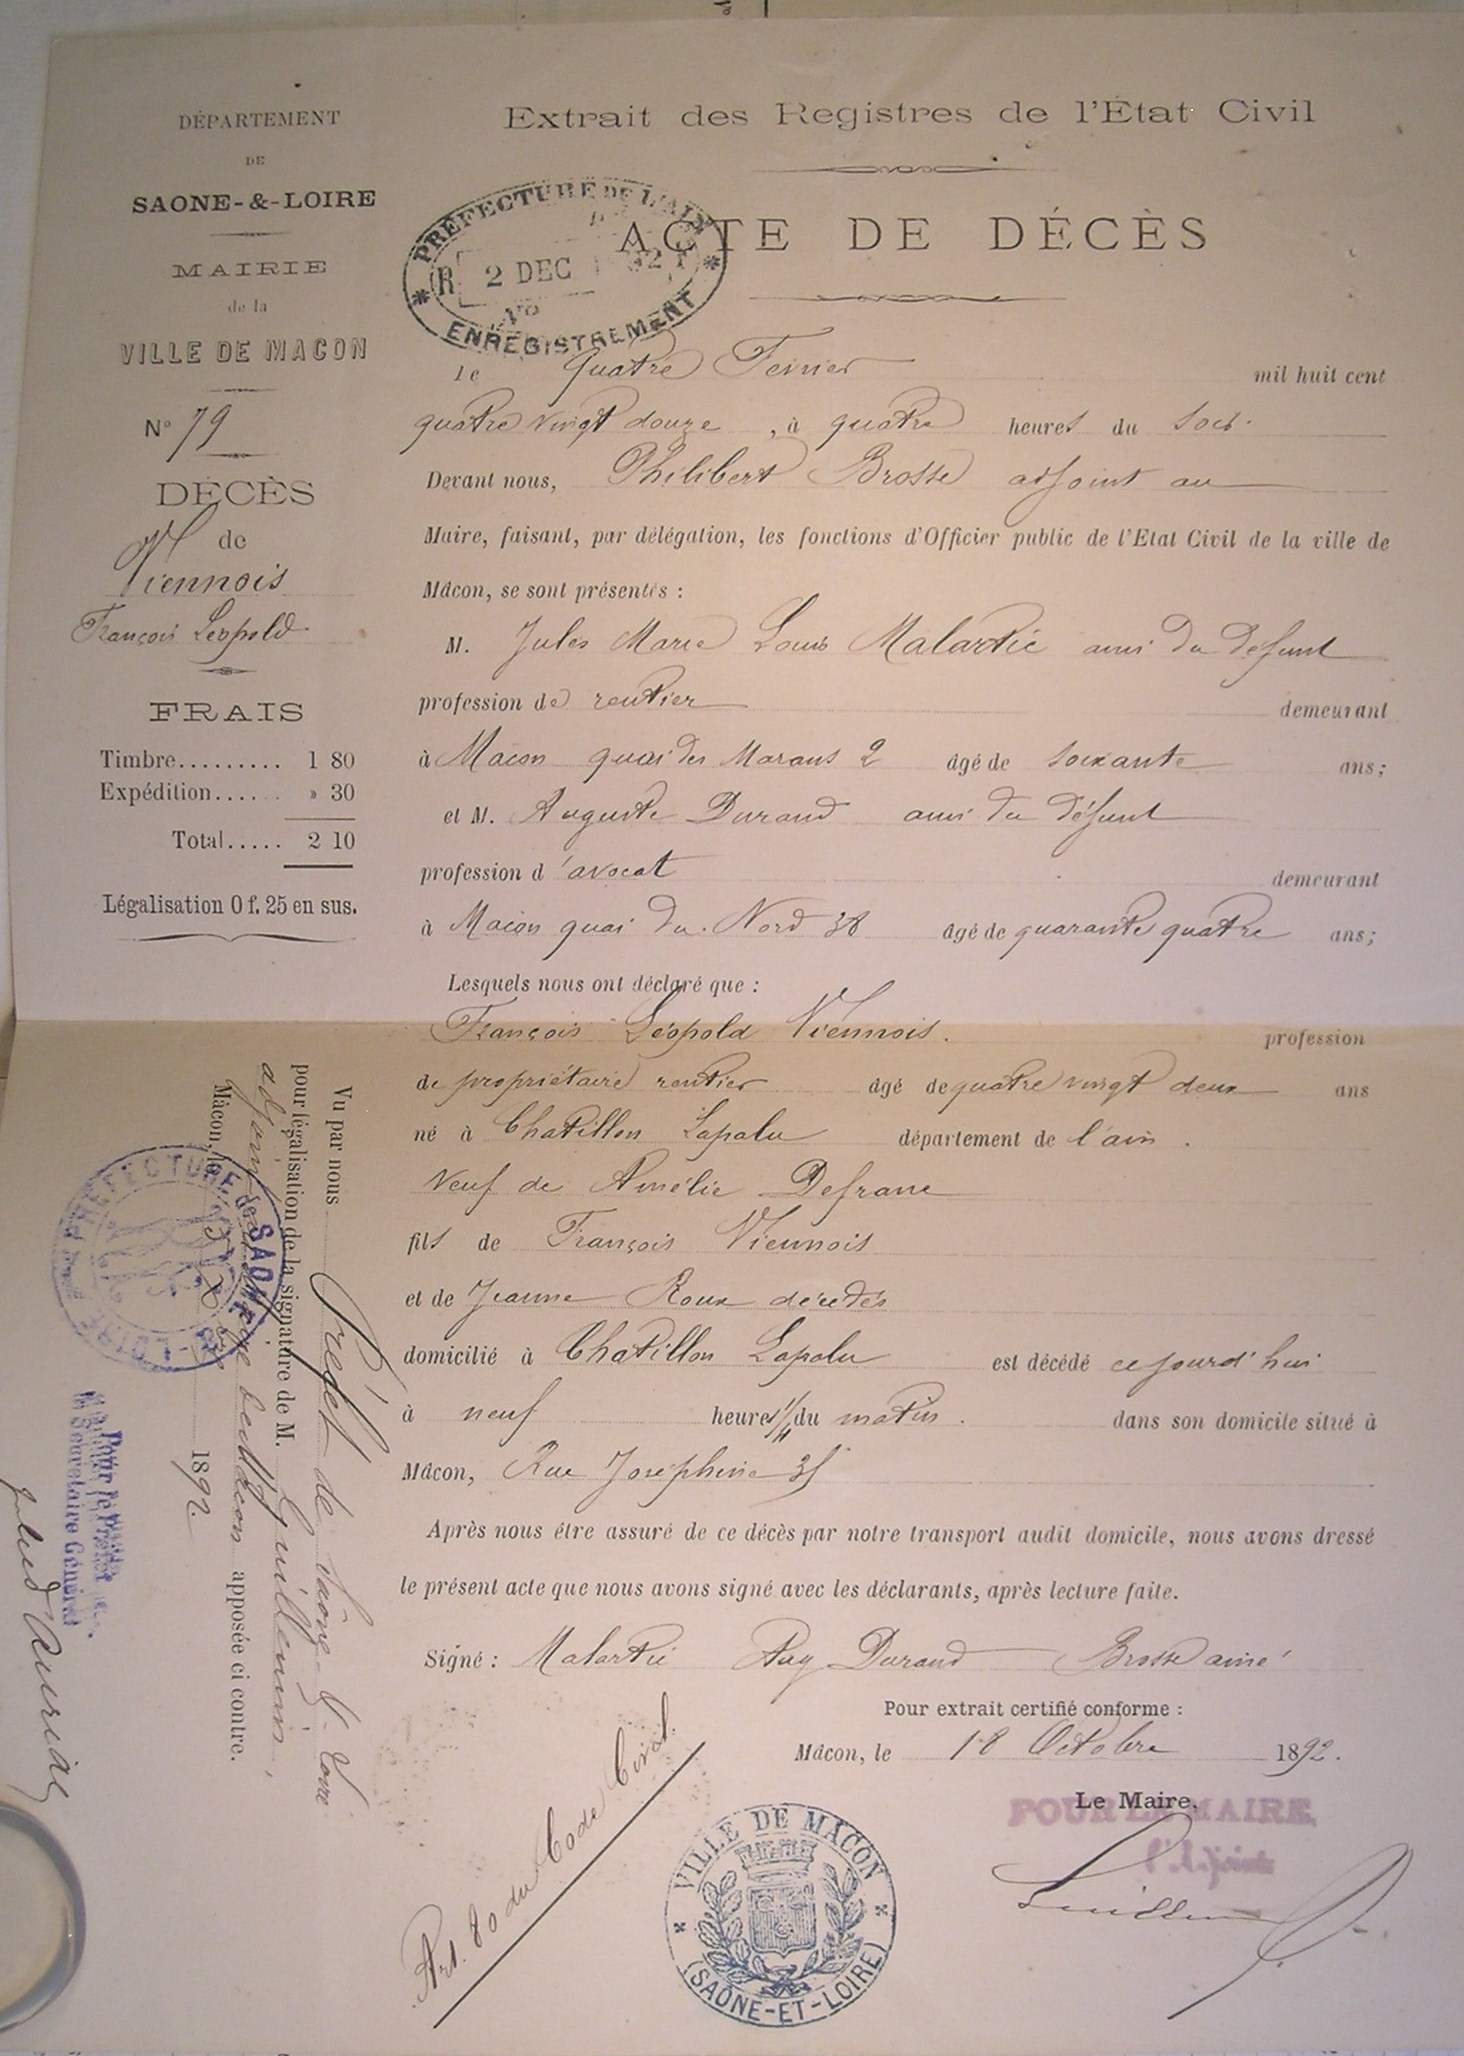 DÉPARTEMENT
DE
SAONE-&-LOIRE
MAIRIE
de la
VILLE DE MACON
N° 79
DÉCÈS
de
Viennois
François Léopold
FRAIS
Timbre......... 1 80
Expédition...... » 30
Total..... 2 10
Légalisation 0 f. 25 en sus.
Extrait des Registres de l'État Civil
PRÉFECTURE DE L'AIN
2 DEC
ENREGISTREMENT
ACTE DE DÉCÈS
le quatre Fevrier mil huit cent
quatre vingt douze, à quatre heures du soir.
Devant nous, Philibert Brosse adjoint au
Maire, faisant, par délégation, les fonctions d'Officier public de l'Etat Civil de la ville de
Mâcon, se sont présentés :
M. Jules Marie Louis Malartic ami du défunt
profession de rentier demeurant
à Macon quai des Marans 2 âgé de soixante ans;
et M. Auguste Durand ami du défunt
profession d'avocat demeurant
à Macon quai du Nord 38 âgé de quarante quatre ans;
Lesquels nous ont déclaré que :
François Léopold Viennois. profession
de propriétaire rentier âgé de quatre vingt deux ans
né à Chatillon Lapalu département de l'ain.
Veuf de Amélie Defrane
fils de François Viennois
et de Jeanne Roux décédés
domicilié à Chatillon Lapalu est décédé cejourd'hui
à neuf heures 1/4 du matin. dans son domicile situé à
Mâcon, Rue Joséphine 35
Après nous être assuré de ce décès par notre transport audit domicile, nous avons dressé
le présent acte que nous avons signé avec les déclarants, après lecture faite.
Signé : Malartic Aug Durand Brosse ainé
Pour extrait certifié conforme :
Mâcon, le 18 Octobre 1892.
Le Maire,
POUR LE MAIRE,
l'Adjoint
Art. 80 du Code Civil.
VILLE DE MACON
(SAÔNE-ET-LOIRE)
Vu par nous Préfet de Saône-&-Loire
pour légalisation de la signature de M. Guillemin,
adjoint au maire de Macon apposée ci contre.
Mâcon, le 1892.
PRÉFECTURE de SAONE-&-LOIRE
Pour le Préfet
le Secrétaire Général